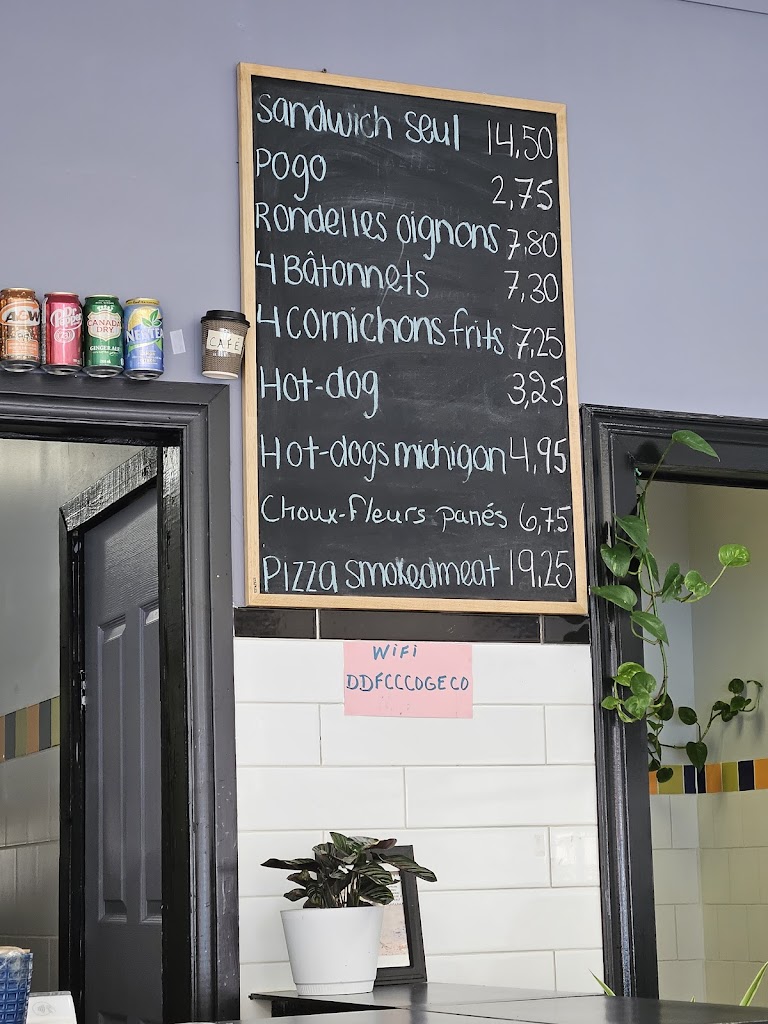 Sandwich seul 14,50
Pogo 2,75
Rondelles oignons 7,80
4 Bâtonnets 7,30
4 Cornichons frits 7,25
Hot-dog 3,25
Hot-dogs michigan 4,95
Choux-Fleurs panés 6,75
Pizza smokedmeat 19,25
A&W
Dr Pepper
23
CANADA DRY
GINGER ALE
NESTEA
CAFÉ
WiFi
DDFCCCOGECO